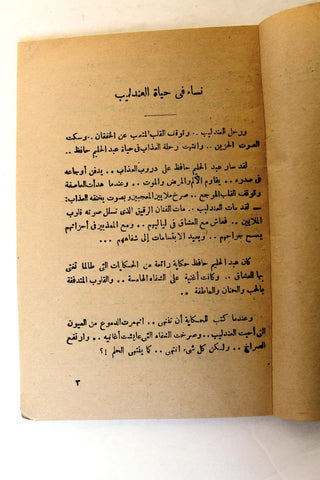 نساء فى حياة العندليب
ورحل العندليب .. وتوقف القلب المتعب عن الخفقان .. وسكت
الصوت الحزين .. وانتهت رحلة العذاب فى حياة عبد الحليم حافظ ..
لقد سار عبد الحليم حافظ على دروب العذاب .. يدفن أوجاعه
فى صدره .. يقاوم الألم والمرض والموت .. وعندما هدأت العاصفة
وتوقف القلب الموجع .. صرخ ملايين المعجبين وبصوت يخنقه العذاب :
لقد مات العندليب .. مات الفنان الرقيق الذى تسلل صوته قلوب
الملايين .. فعاش مع العشاق فى لياليهم .. ومع المعذبين فى أحزانهم
يمسح جراحهم .. ويعيد الابتسامات إلى شفاههم ..
كان عبد الحليم حافظ حكاية رائعة من الحكايات التى طالما تغنى
بها العشاق .. وكانت أغنية على الشفاه الهامسة .. والقلوب المتدفقة
بالحب والحنان والعاطفة ..
وعندما كتب للحكاية أن تنتهى .. انهمرت الدموع من العيون
التى أحبت العندليب .. وصرخت الشفاه التى عايشت أغانيه .. وارتفع
الصراخ .. ولكن كل شىء انتهى .. كما ينتهى الحلم !؟
٣